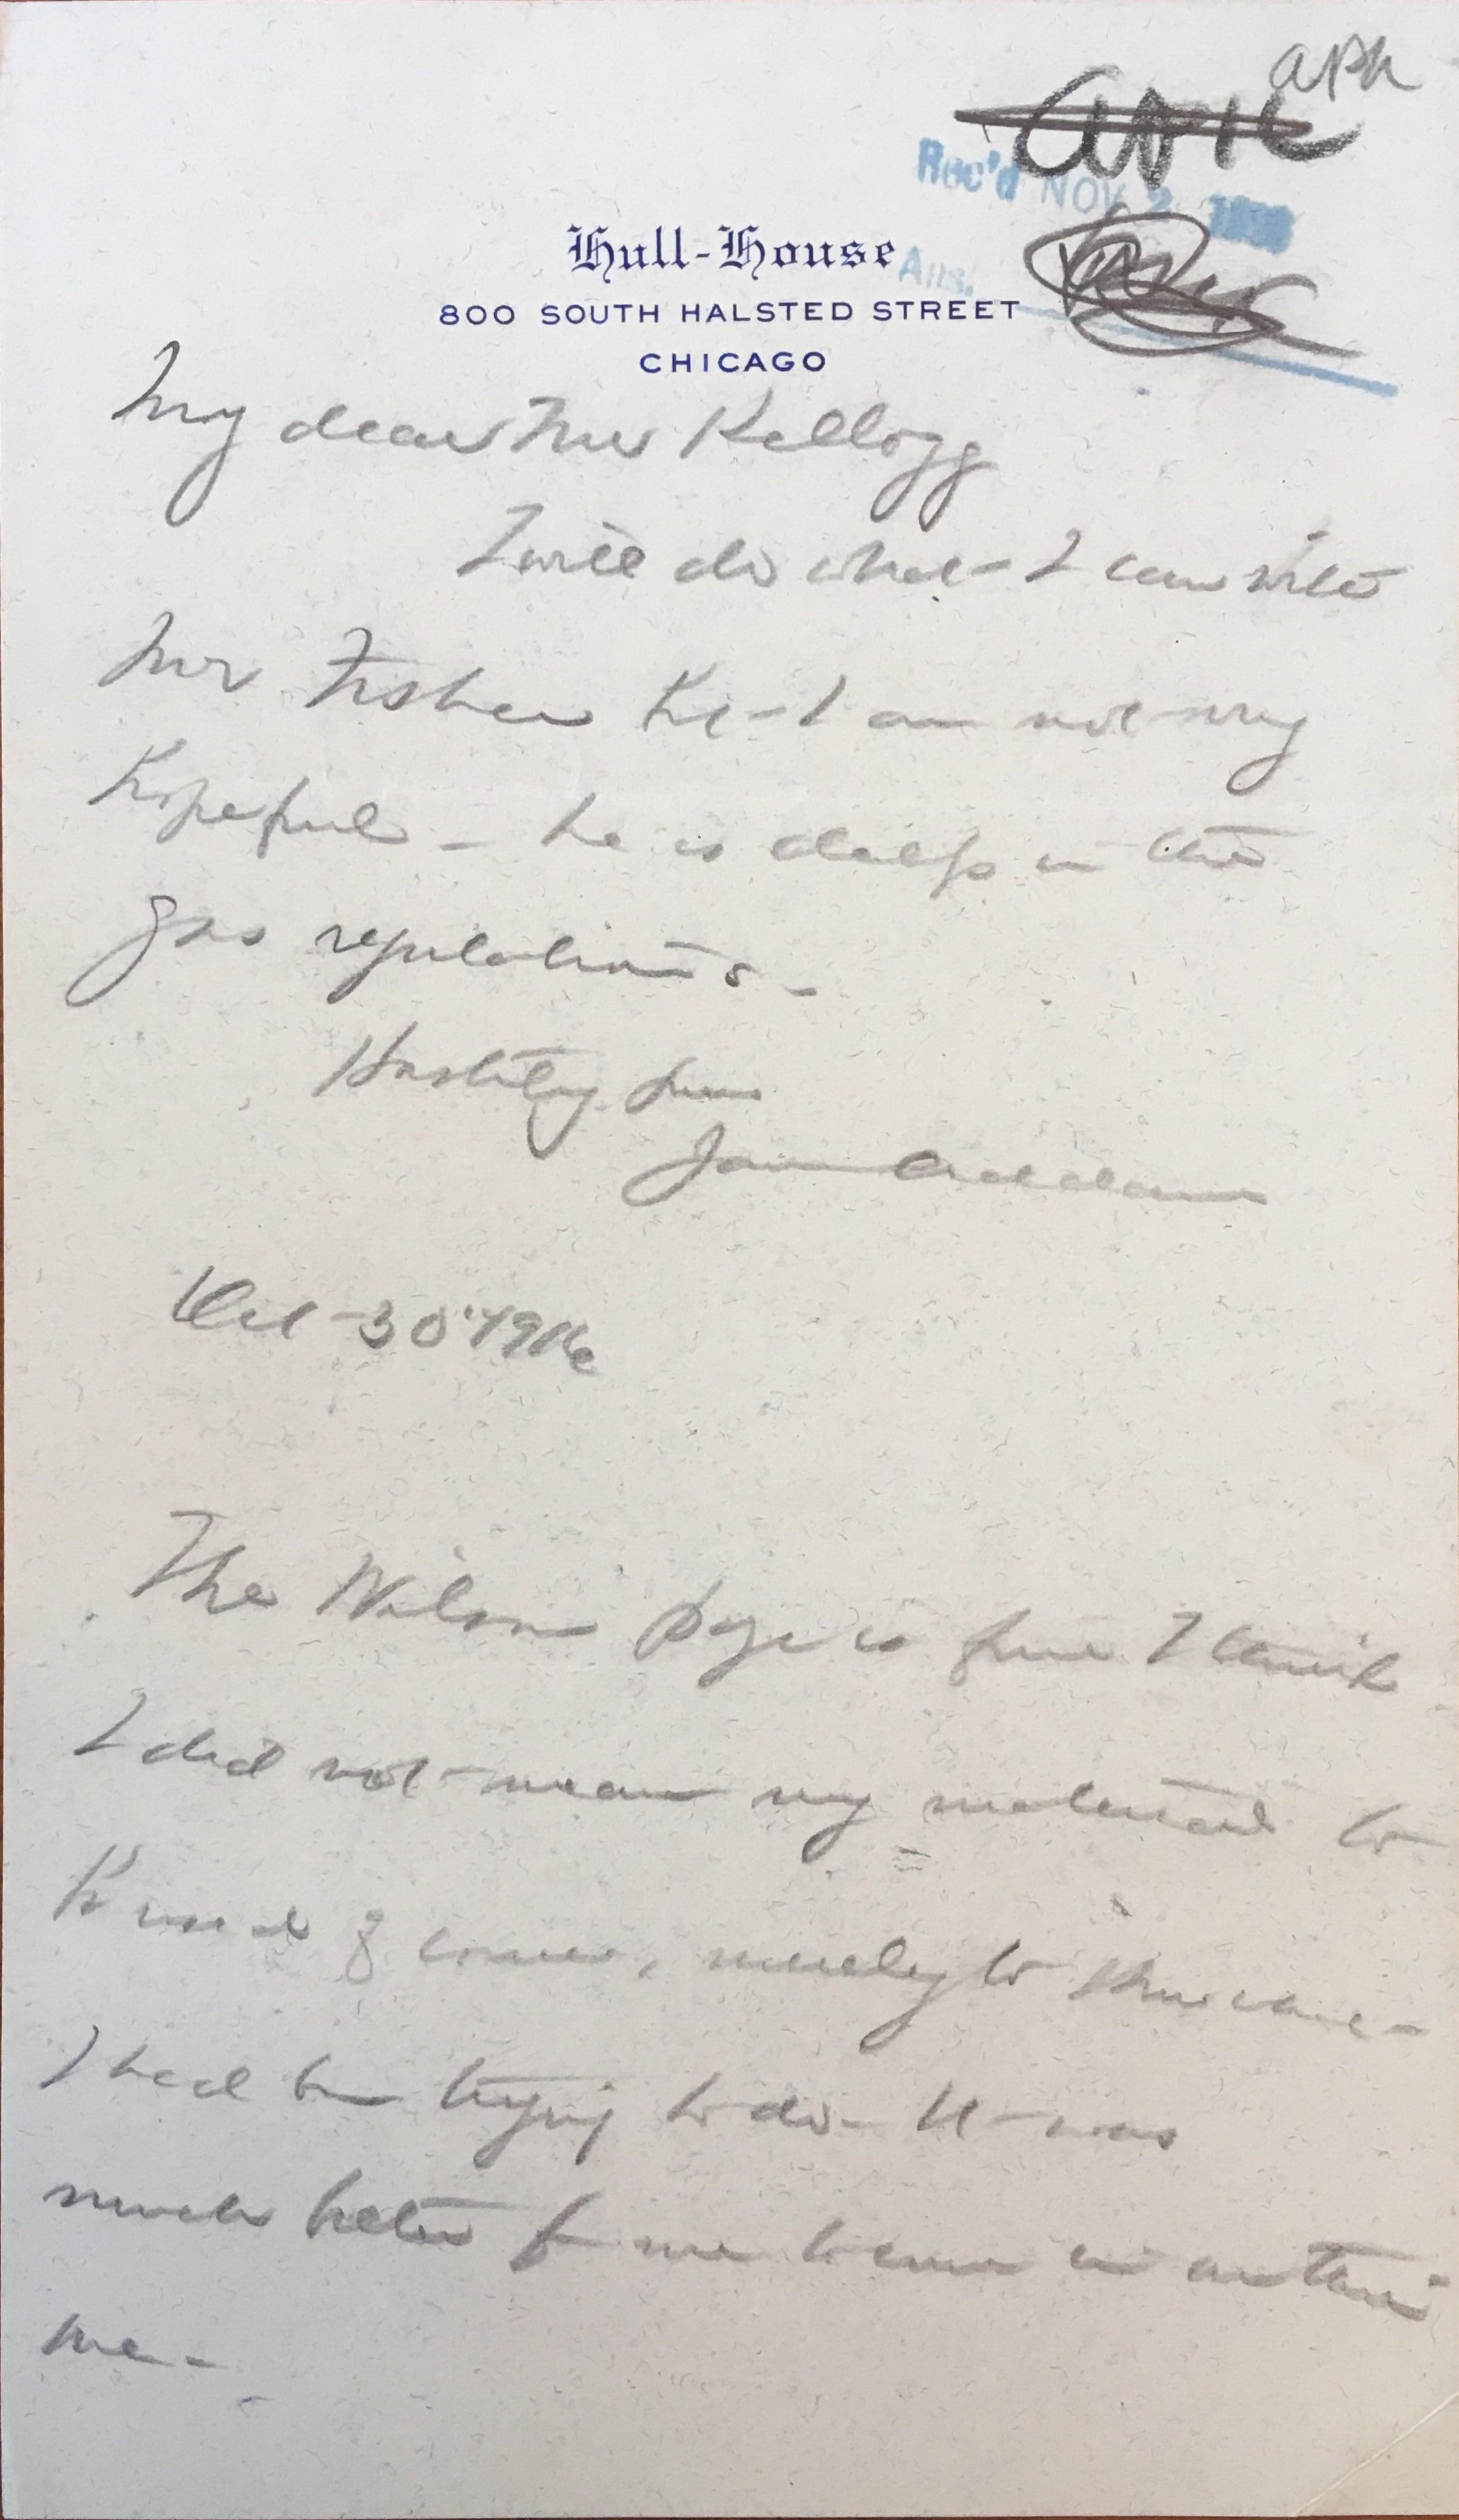 apk
APK
Rec'd NOV 2
Hull-House
Ans.
800 SOUTH HALSTED STREET
CHICAGO
My dear Mr Kellogg
I will do what I can with
Mr Fisher but I am not very
hopeful - he is deep in the
gas regulations -
Hastily yours
Jane Addams
Oct - 30" 1916
The Wilson page is fine I think
I did not mean my material to
be used of course, merely to show what
I had been trying to do - It was
much better for me to come in on their